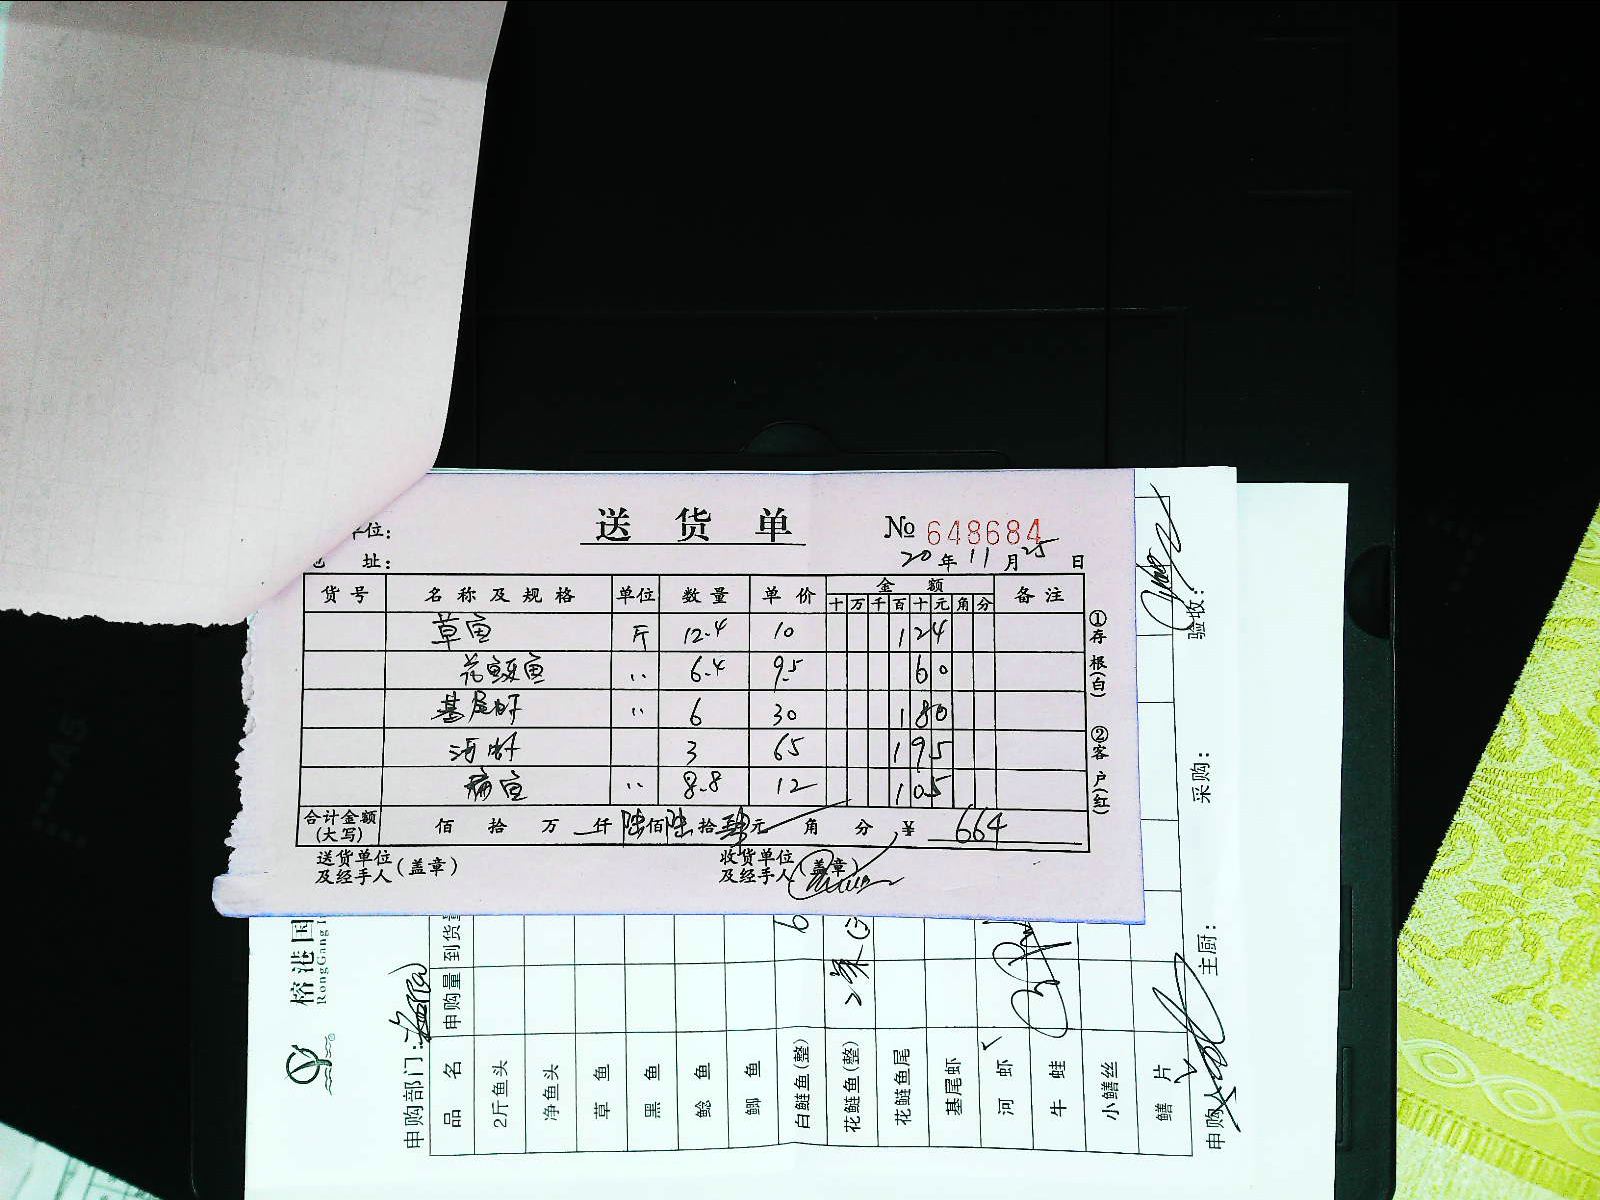 送 货 单 № 648684
单位:
址: 20 年 11 月 25 日
货号 名称及规格 单位 数量 单价 金额 备注
十 万 千 百 十 元 角 分
草鱼 斤 12.4 10 124
花鲢鱼 〃 6.4 9.5 60
基尾虾 〃 6 30 180
河虾 3 65 195
鱼 〃 8.8 12 105
合计金额(大写) 佰 拾 万 仟 陆佰 陆拾 肆元 角 分 ¥ 664
送货单位及经手人(盖章) 收货单位及经手人(盖章)
①存根(白) ②客户(红)
榕港国
RongGang I
申购部门:
品名 申购量 到货量
2斤鱼头
净鱼头
草鱼
黑鱼
鲶鱼
鲫鱼
白鲢鱼(整) 6
花鲢鱼(整) 2条
花鲢鱼尾
基尾虾
河虾 ✓
牛蛙
小鳝丝
鳝片
申购人 主厨: 采购: 验收:
A5